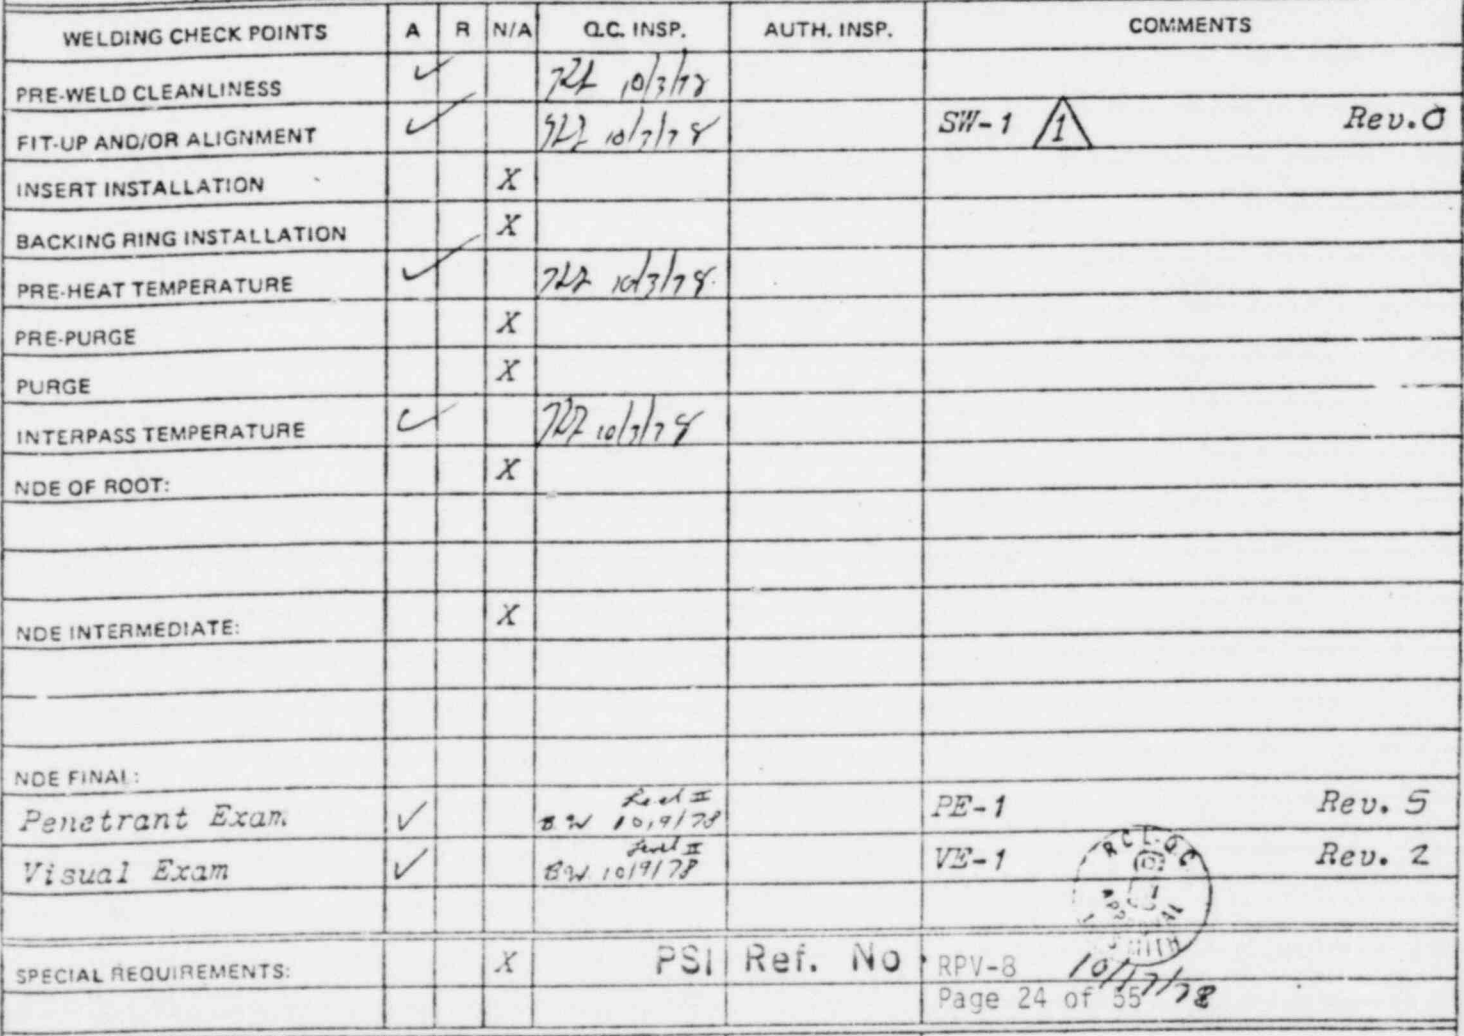 WELDING CHECK POINTS A R N/A Q.C. INSP. AUTH. INSP. COMMENTS
PRE-WELD CLEANLINESS ✓ 10/3/78
FIT-UP AND/OR ALIGNMENT ✓ 10/3/78 SW-1 1 Rev.0
INSERT INSTALLATION X
BACKING RING INSTALLATION X
PRE-HEAT TEMPERATURE ✓ 10/3/78
PRE-PURGE X
PURGE X
INTERPASS TEMPERATURE ✓ 10/3/78
NDE OF ROOT: X
NDE INTERMEDIATE: X
NDE FINAL:
Level II
Penetrant Exam ✓ B.W 10/9/78 PE-1 Rev. 5
Level II
Visual Exam ✓ B.W. 10/9/78 VE-1 Rev. 2
RCI-QC
APPROVAL
SMITH
SPECIAL REQUIREMENTS: X PSI Ref. No. RPV-8 10/17/78
Page 24 of 55